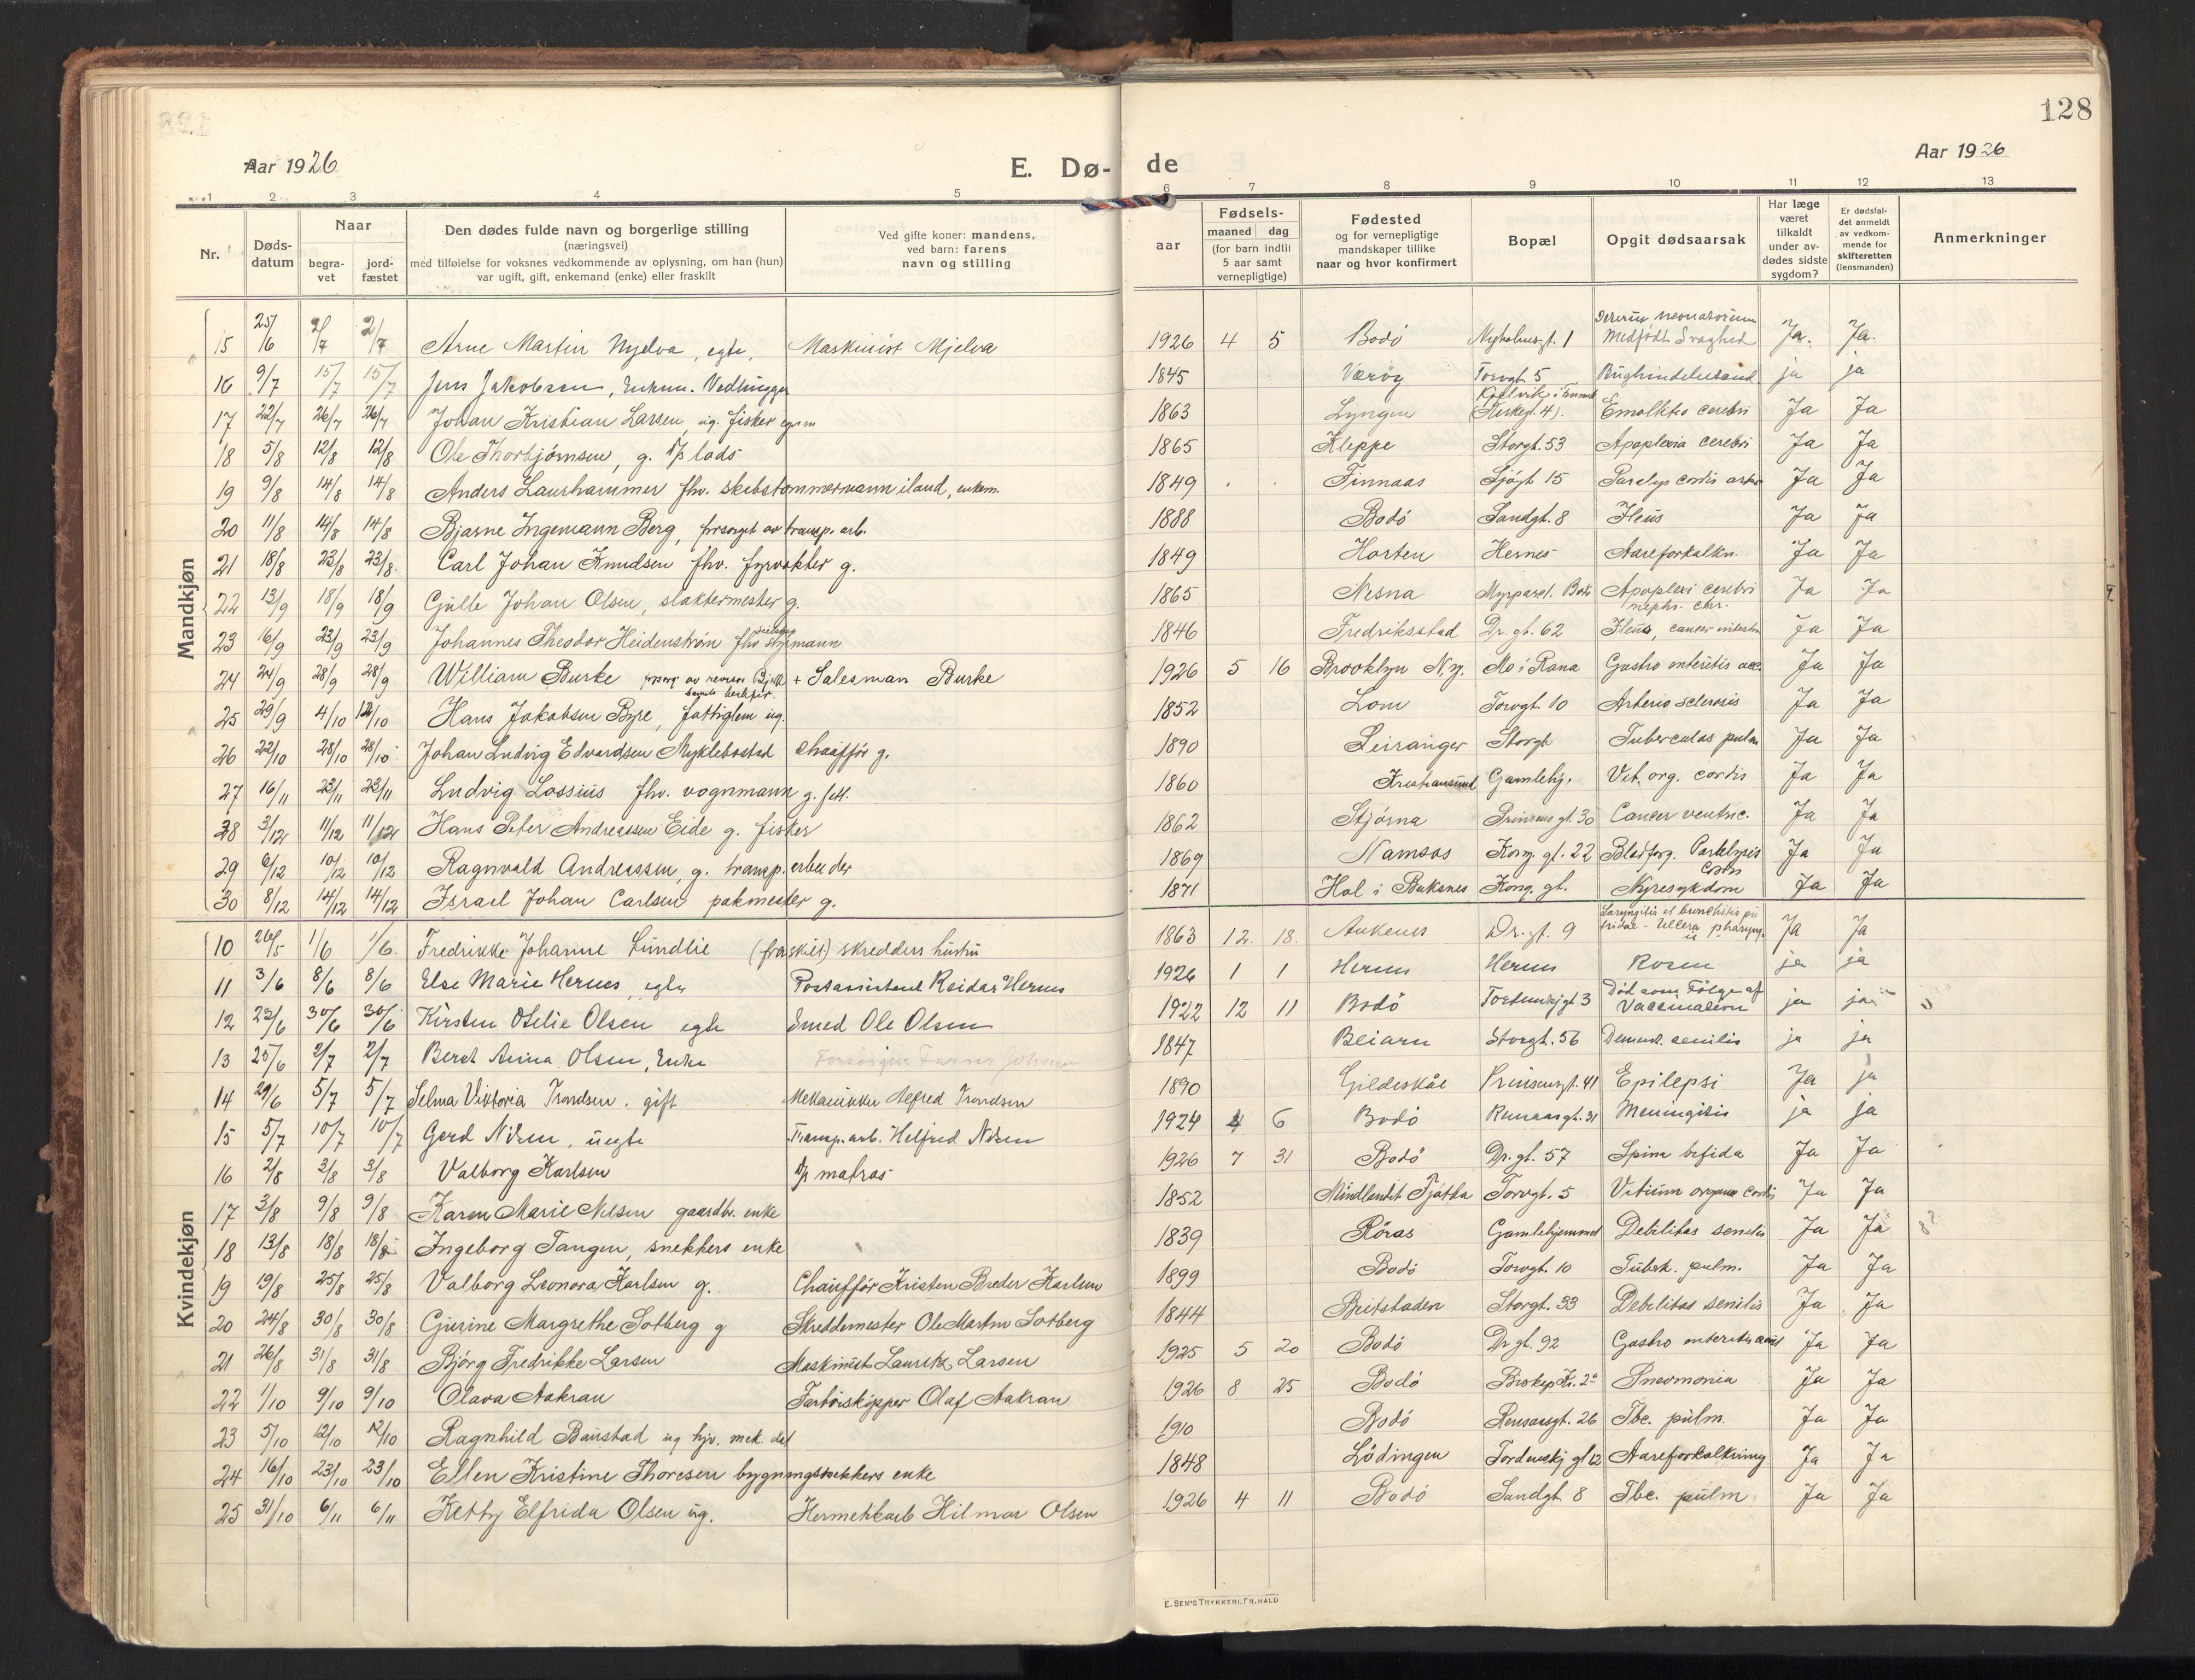 128
Aar 1926
E. Dø-
de
Aar 1926
1 2 3 4 5 6 7 8 9 10 11 12 13
Nr.
Døds-
datum
Naar
begra-
vet
jord-
fæstet
Den dødes fulde navn og borgerlige stilling
(næringsvei)
med tilføielse for voksnes vedkommende av oplysning, om han (hun)
var ugift, gift, enkemand (enke) eller fraskilt
Ved gifte koner: mandens,
ved barn: farens
navn og stilling
aar
Fødsels-
maaned dag
(for barn indtil
5 aar samt
vernepligtige)
Fødested
og for vernepligtige
mandskaper tillike
naar og hvor konfirmert
Bopæl
Opgit dødsaarsak
Har læge
været
tilkaldt
under av-
dødes sidste
sygdom?
Er dødsfal-
det anmeldt
av vedkom-
mende for
skifteretten
(lensmanden)
Anmerkninger
Mandkjøn
15 25/6 2/7 2/7 Arne Martin Mjelva, egte, Maskinist Mjelva 1926 4 5 Bodø 1 Icterus neonatorum Medfødt Svaghed Ja. Ja.
16 9/7 15/7 15/7 Jens Jakobsen, Enkem. Vedhugger 1845 Værøy Torvgt. 5 ja ja
17 22/7 26/7 26/7 Johan Kristian Larsen, ug. fisker 1863 Lyngen 4). cerebri Ja Ja
18 5/8 12/8 12/8 Ole Thorbjørnsen, g. D/s lods 1865 Kleppe Storgt. 53 Apoplexia cerebri Ja Ja
19 9/8 14/8 14/8 Anders Laurhammer fhv. skibstømmermann iland, enkem. 1849 Finnaas Sjøgt 15 cordis Ja Ja
20 11/8 14/8 14/8 Bjarne Ingemann Berg, forsørget av transp. arb. 1888 Bodø Sandgt. 8 Ileus Ja Ja
21 18/8 23/8 23/8. Carl Johan Knudsen fhv. fyrvokter g. 1849 Horten Hernes Aareforkalkn. Ja Ja
22 13/9 18/9 18/9 Gulle Johan Olsen, slaktermester g. 1865 Nesna Myrparst. Bodø Apoplexi cerebri nephr. chr. Ja Ja
23 16/9 23/9 23/9 Johannes Theodor Heidenstrøm fhv styrmann 1846 Fredriksstad Dr. gt. 62 Ileus, cancer intestin Ja Ja
24 24/9 28/9 28/9 William Burke + Salesman Burke 1926 5 16 Brooklyn N.y. Mo i Rana Gastro enteritis acc. Ja Ja
25 29/9 4/10 12/10 Hans Jakobsen Byre, fattiglem ug. 1852 Lom Torvgt. 10 Arterio sclerosis Ja Ja
26 22/10 28/10 28/10 Johan Ludvig Edvardsen Myklebostad chauffør g. 1890 Leiranger Storgt Tuberculos pulm Ja Ja
27 16/11 23/11 23/11 Ludvig Lossius fhv. vognmann g. 1860 Kristiansund Gamlehj. Vit. org. cordis Ja Ja
28 3/12 11/12 11/12 Hans Peter Andreassen Eide g. fisker 1862 Stjørna Prinsens gt. 30 Cancer ventric. Ja Ja
29 6/12 10/12 10/12 Ragnvald Andreassen, g. transp. arbeider 1869 Namsos Kong. gt. 22 Paralysis cordis Ja Ja
30 8/12 14/12 14/12 Israel Johan Carlsen pakmester g. 1871 Hol i Buksnes Kong. gt. Nyresykdom Ja Ja
Kvindekjøn
10 26/5 1/6 1/6. Fredrikke Johanne Lundlie (fraskilt) skredders hustru 1863 12. 18. Ankenes Dr. gt. 9 Laryngitis et bronchitis Ja Ja
11 3/6 8/6 8/6 Else Marie Hernes, egte Postassistent Reidar Hernes 1926 1 1 Hernes Hernes Rosen ja ja
12 23/6 30/6 30/6 Kirsten Otelie Olsen egte Smed Ole Olsen 1922 12 11 Bodø Tordenskjgt 3 Død som Følge af Vaccination ja ja
13 25/6 2/7 2/7 Beret Anna Olsen, Enke 1847 Beiarn Storgt. 56 Dement. senilis ja ja
14 29/6 5/7 5/7 Selma Viktoria Trondsen, gift Mekaniker Alfred Trondsen 1890 Gildeskål Prinsensgt. 41 Epilepsi Ja ja
15 5/7 10/7 10/7 Gerd Nilsen, uegte Transp. arb. Helfred Nilsen 1924 4 6 Bodø Rensaasgt. 31 Meningitis ja ja
16 2/8 3/8 3/8 Valborg Karlsen D/s matros 1926 7 31 Bodø Dr. gt. 57 Spina bifida Ja Ja
17 3/8 9/8 9/8 Karen Marie Nilsen gaardbr. enke 1852 Mindlandet Tjøtta Torvgt. 5 Vitium organ cordis Ja Ja
18 13/8 18/8 18/8 Ingeborg Tangen, snekkers enke 1839 Røros Gamlehjemmet Debilitas senilis Ja Ja
19 19/8 25/8 25/8 Valborg Leonora Karlsen g. Chauffør Kristen Breder Karlsen 1899 Bodø Torvgt. 10 Tuberk. pulm. Ja Ja
20 24/8 30/8 30/8 Gjurine Margrethe Solberg g Skreddermester Ole Martin Solberg 1844 Beitstaden Storgt. 33 Debilitas senilis Ja Ja
21 26/8 31/8 31/8 Bjørg Fredrikke Larsen Maskinist Lauritz Larsen 1925 5 20 Bodø Dr gt. 92 Gastro enteritis Ja Ja
22 1/10 9/10 9/10 Olava Aakran Olaf Aakran 1926 8 25 Bodø Pneomonia Ja Ja
23 5/10 12/10 12/10 Ragnhild Baustad ug hjv. mek. dat 1910 Bodø Rensaasgt. 26 Tbc. pulm. Ja Ja
24 16/10 23/10 23/10 Ellen Kristine Thoresen bygningssnekkers enke 1848 Lødingen Tordenskj gt 12 Aareforkalkning Ja Ja
25 31/10 6/11 6/11 Ketty Elfrida Olsen ug. Hermetikarb Hilmar Olsen 1926 4 11 Bodø Sandgt. 8 Tbc. pulm Ja Ja
E. SEM'S TRYKKERI, FR. HALD